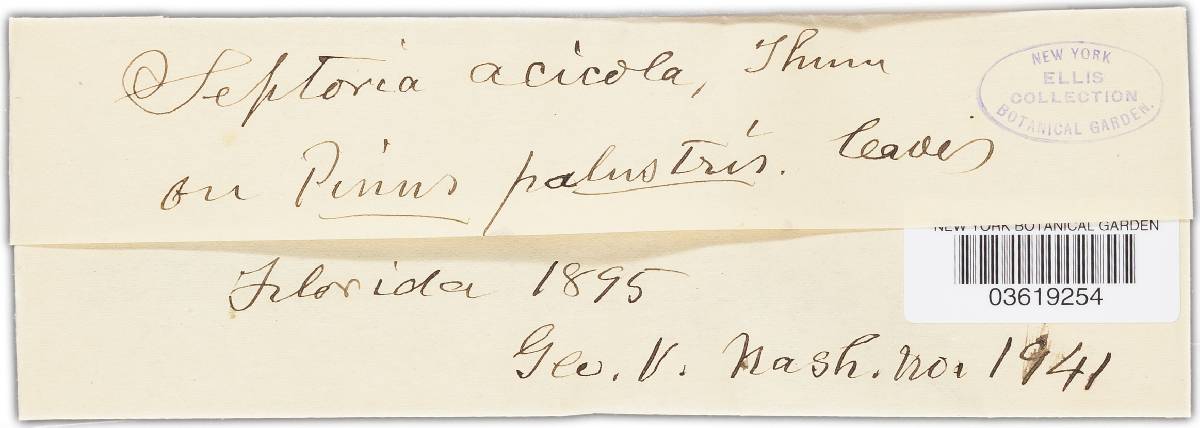 Septoria acicola, Thum
NEW YORK
ELLIS
COLLECTION
BOTANICAL GARDEN.
on Pinus palustris. leaves
NEW YORK BOTANICAL GARDEN
03619254
Florida 1895
Geo. V. Nash. No. 1941